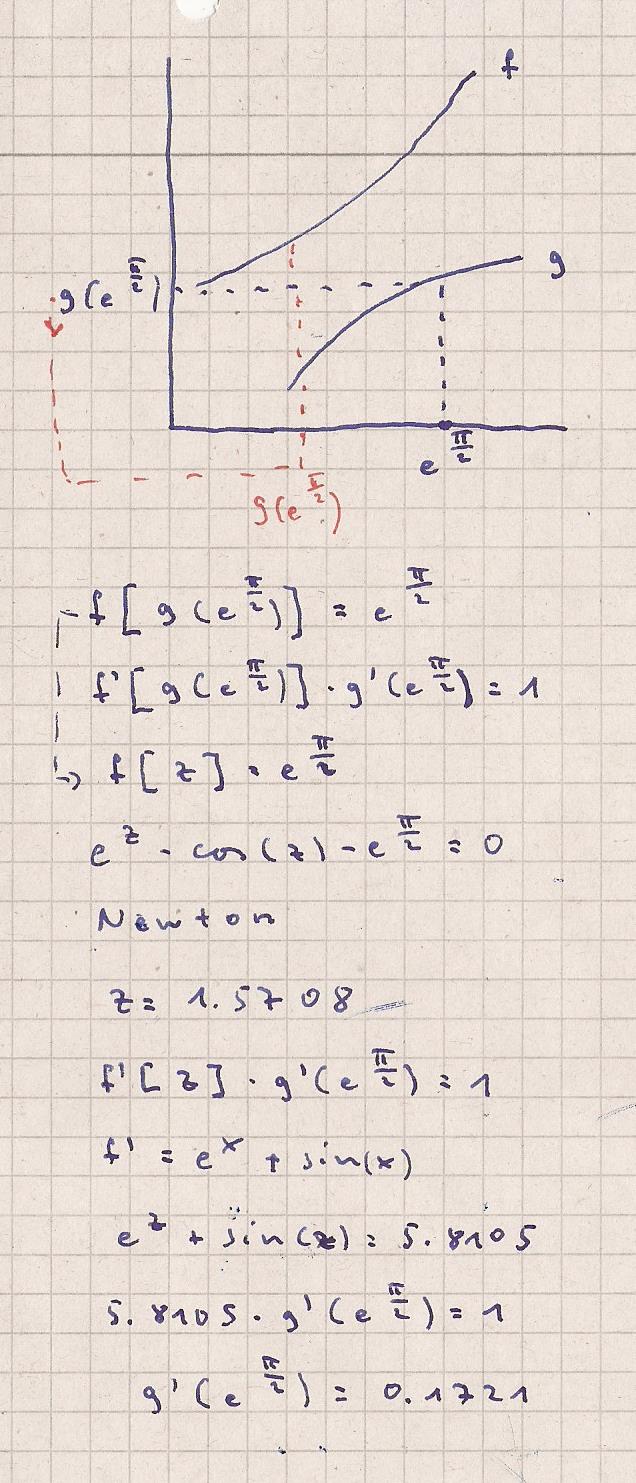 f
g
g(e^π/2)
e^π/2
g(e^π/2)
f[g(e^π/2)] = e^π/2
f'[g(e^π/2)] · g'(e^π/2) = 1
f[z] = e^π/2
e^z - cos(z) - e^π/2 = 0
Newton
z = 1.5708
f'[z] · g'(e^π/2) = 1
f' = e^x + sin(x)
e^z + sin(z) = 5.8105
5.8105 · g'(e^π/2) = 1
g'(e^π/2) = 0.1721